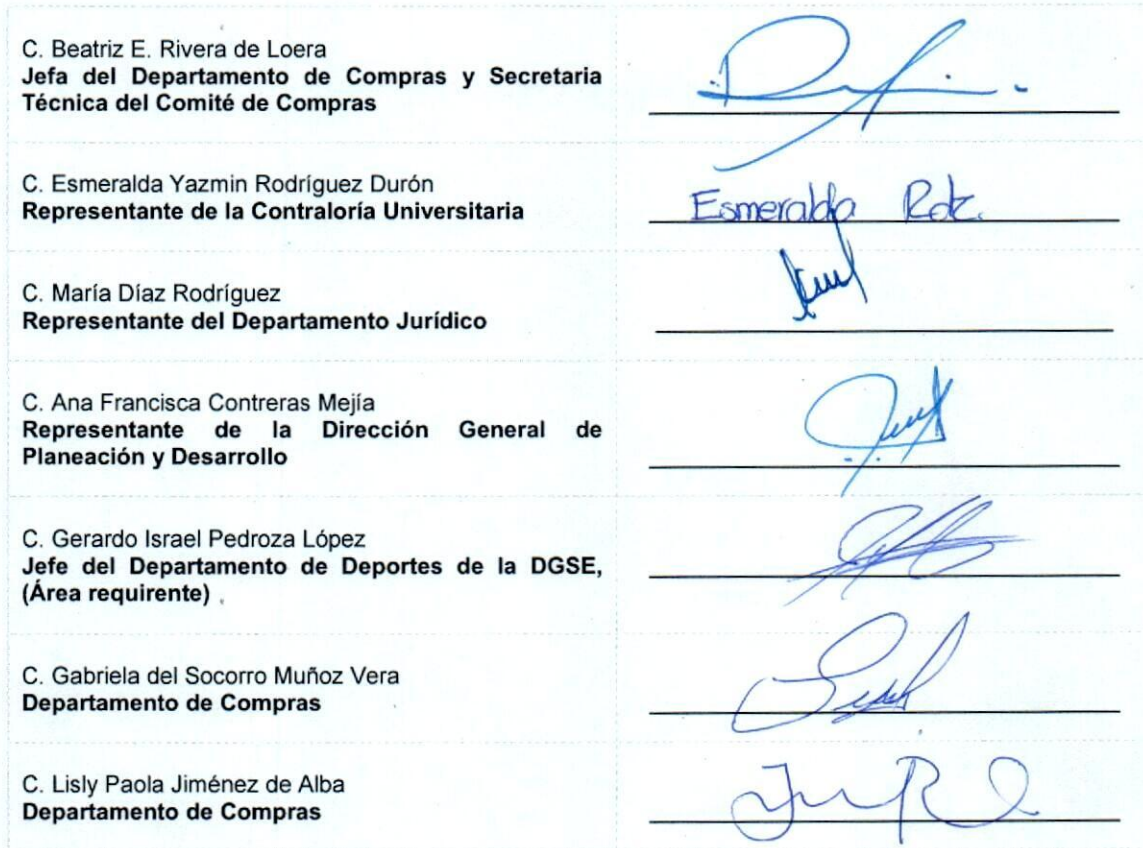 C. Beatriz E. Rivera de Loera
Jefa del Departamento de Compras y Secretaria
Técnica del Comité de Compras
C. Esmeralda Yazmin Rodríguez Durón
Representante de la Contraloría Universitaria
Esmeralda Rdz.
C. María Díaz Rodríguez
Representante del Departamento Jurídico
C. Ana Francisca Contreras Mejía
Representante de la Dirección General de
Planeación y Desarrollo
C. Gerardo Israel Pedroza López
Jefe del Departamento de Deportes de la DGSE,
(Área requirente)
C. Gabriela del Socorro Muñoz Vera
Departamento de Compras
C. Lisly Paola Jiménez de Alba
Departamento de Compras